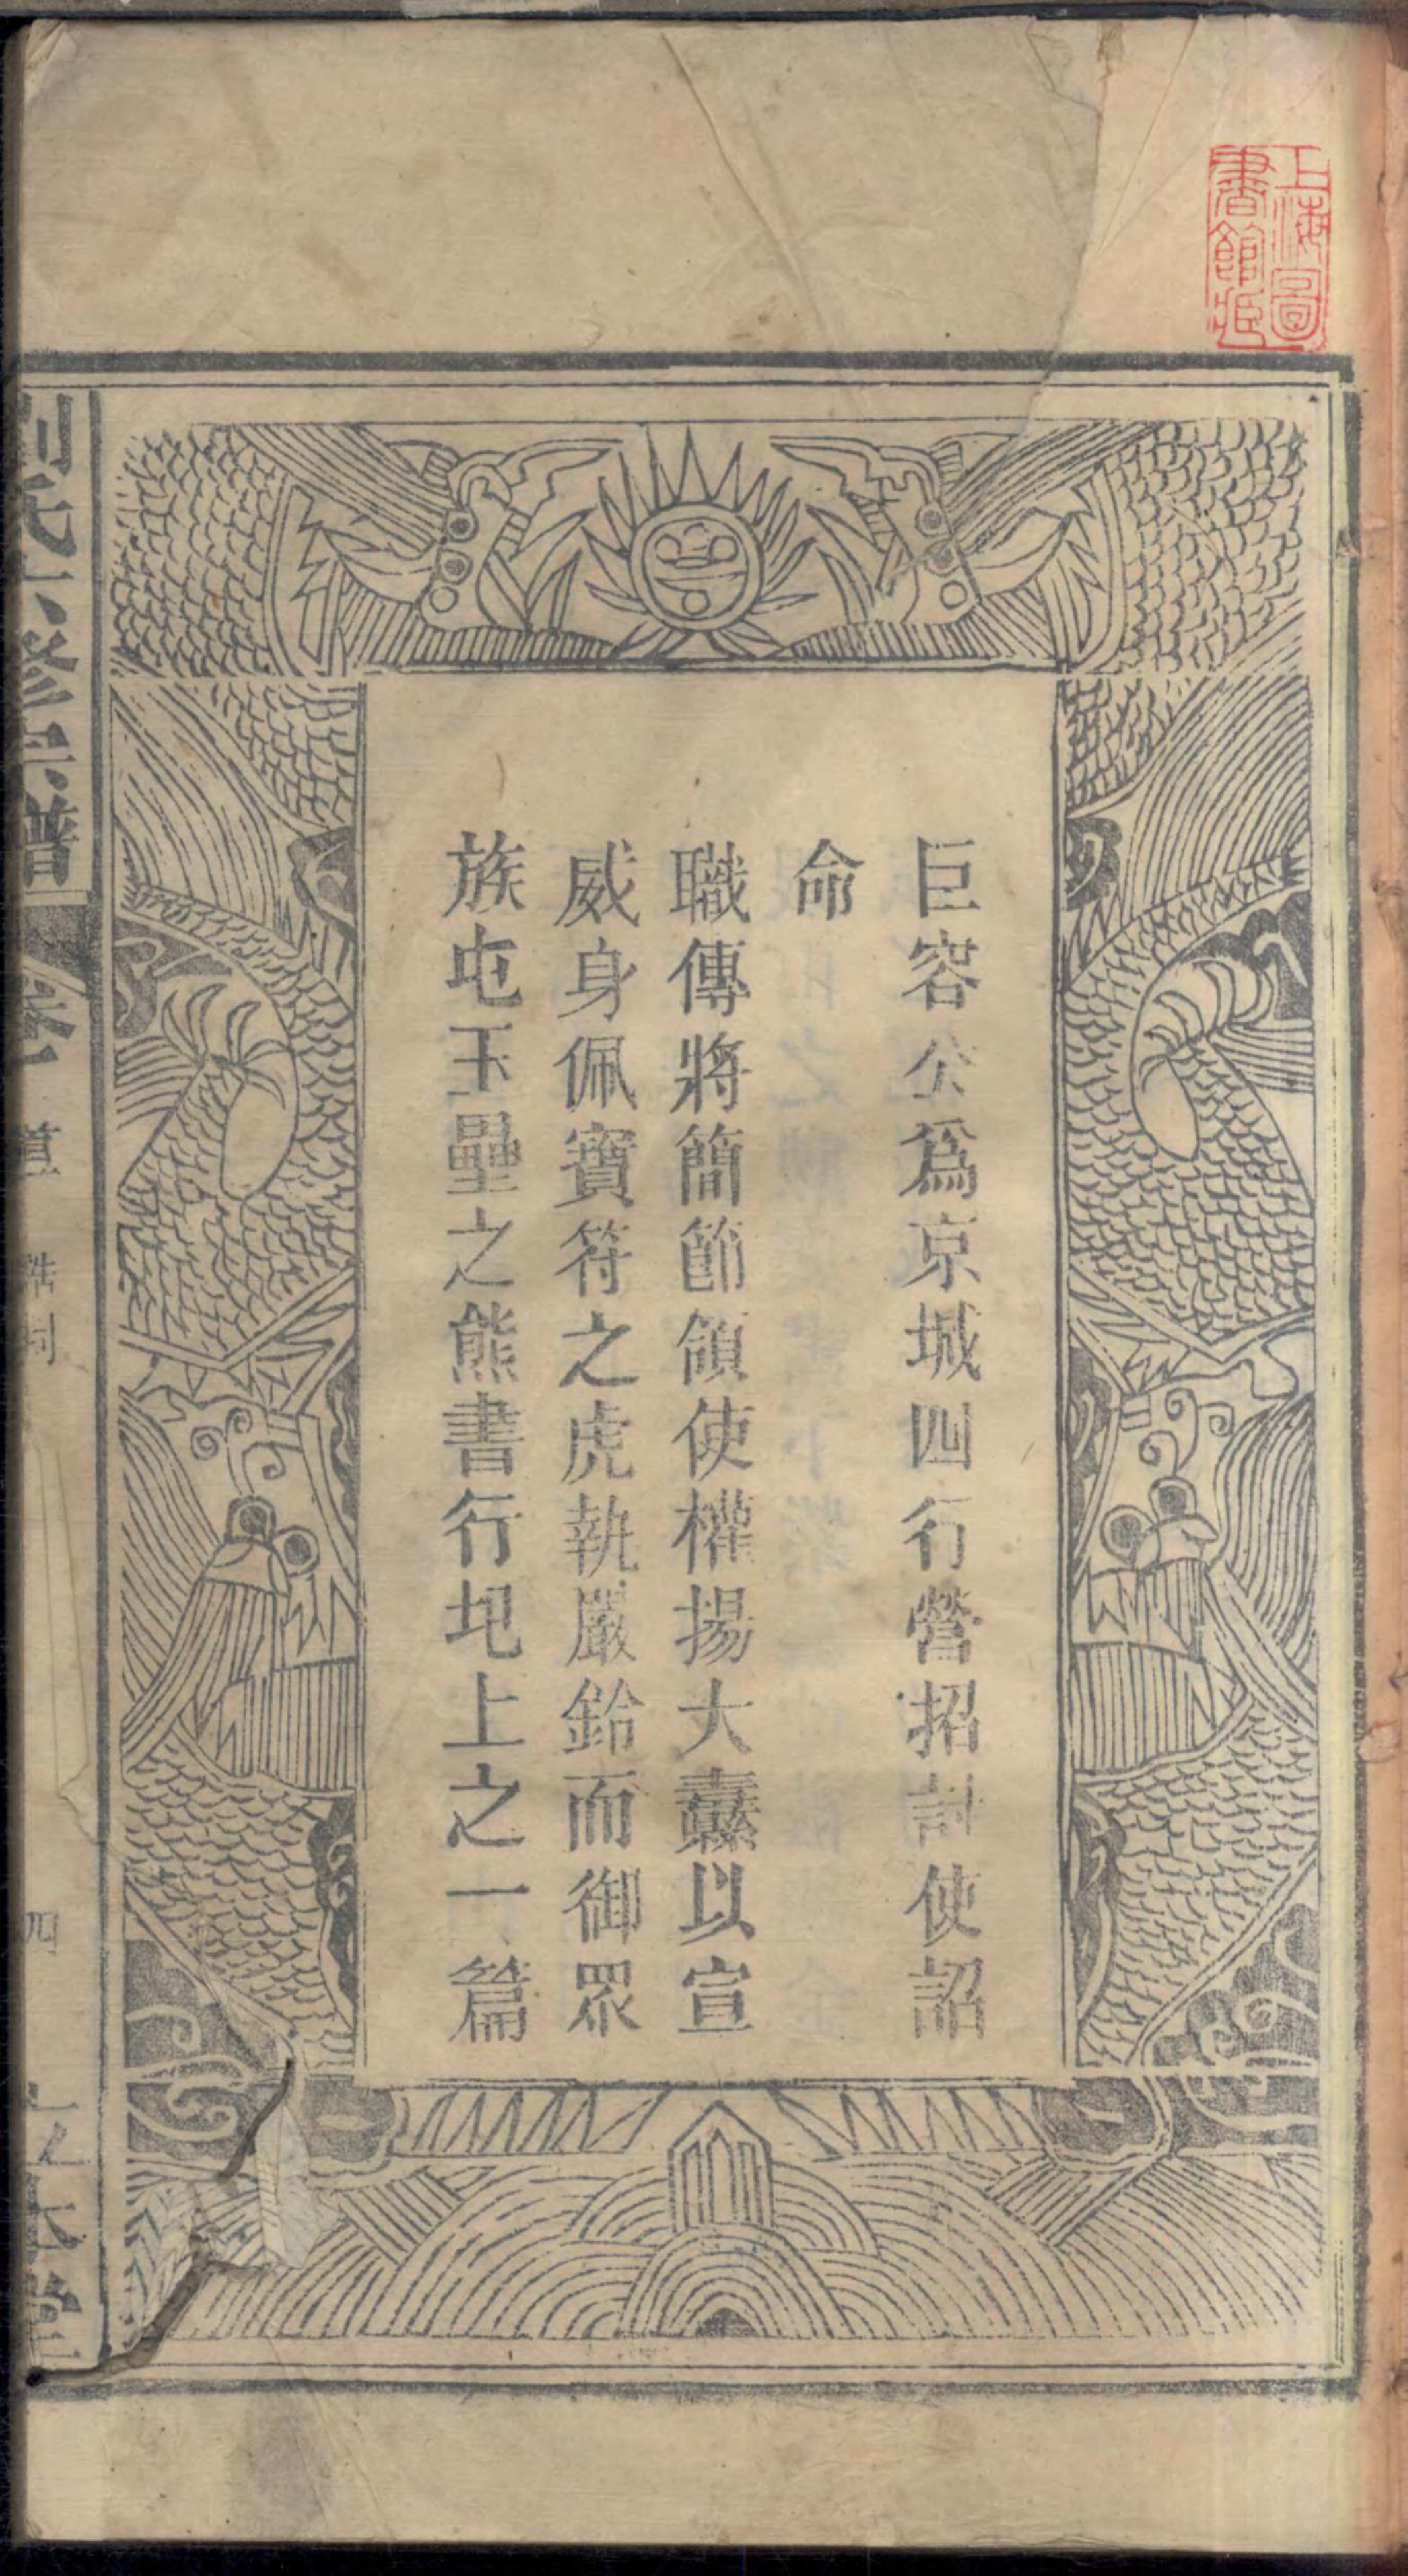 上海圖
書館藏
巨容公爲京城四行營招討使詔
命
職傳將簡節領使權揚大纛以宣
威身佩寶符之虎執嚴鈴而御眾
族屯玉壘之熊書行圯上之一篇
劉氏六修宗譜 卷 首 誥封 四